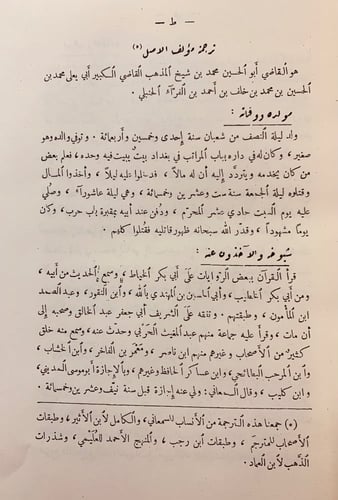 — ط —
ترجمة مؤلف الاصل (٥)
هو القاضي أبو الحسين محمد بن شيخ المذهب القاضي الكبير أبي يعلى محمد بن
الحسين بن محمد بن خلف بن أحمد بن الفرّاء الحنبلي .
مولده ووفاته :
ولد ليلة النصف من شعبان سنة إحدى وخمسين وأربعمائة . وتوفي والده وهو
صغير ، وكان له في داره بباب المراتب في بغداد بيتٌ يبيت فيه وحده، فعلم بعض
من كان يخدمه ويتردّد إليه أن له مالاً ، فدخلوا عليه ليلاً ، وأخذوا المال
وقتلوه ليلة الجمعة سنة ست وعشرين وخمسمائة ، وهي ليلة عاشوراء ، وصُلي
عليه يوم السبت حادي عشر المحرّم ، ودُفن عند أبيه بمقبرة باب حرب ، وكان
يومًا مشهودًا ، وقدّر الله سبحانه ظهور قاتليه فقتلوا كلهم .
شيوخه والآخذون عنه :
قرأ القرآن ببعض الروايات على أبي بكر الخياط ، وسمع الحديث من أبيه ،
ومن أبي بكر الخطيب ، وأبي الحسين بن المهتدي بالله ، وابن النقور ، وعبد الصمد
ابن المأمون ، وطبقتهم . وتفقه على الشريف أبي جعفر عبد الخالق وصحبه إلى
أن مات ، وقرأ عليه جماعة منهم عبد المغيث الحَرْبي وحدّث عنه ، وسمع منه خلق
كثيرٌ من الأصحاب وغيرهم منهم ابن ناصر ، ومَعْمر بن الفاخر ، وابن الخشاب ،
وابن المرحب البطائحي ، وابن عساكر الحافظ وغيرهم ، وبالإجازة أبو موسى المديني،
وابن كليب ، وقال السمعاني : ولي عنه إجازة قبل سنة نيّف وعشرين وخمسمائة .
(٥) جمعنا هذه الترجمة من الأنساب للسمعاني، والكامل لابن الأثير، وطبقات
الأصحاب للمترجم ، وطبقات ابن رجب ، والمنهج الأحمد للعُلَيمي ، وشذرات
الذّهب لابن العماد.